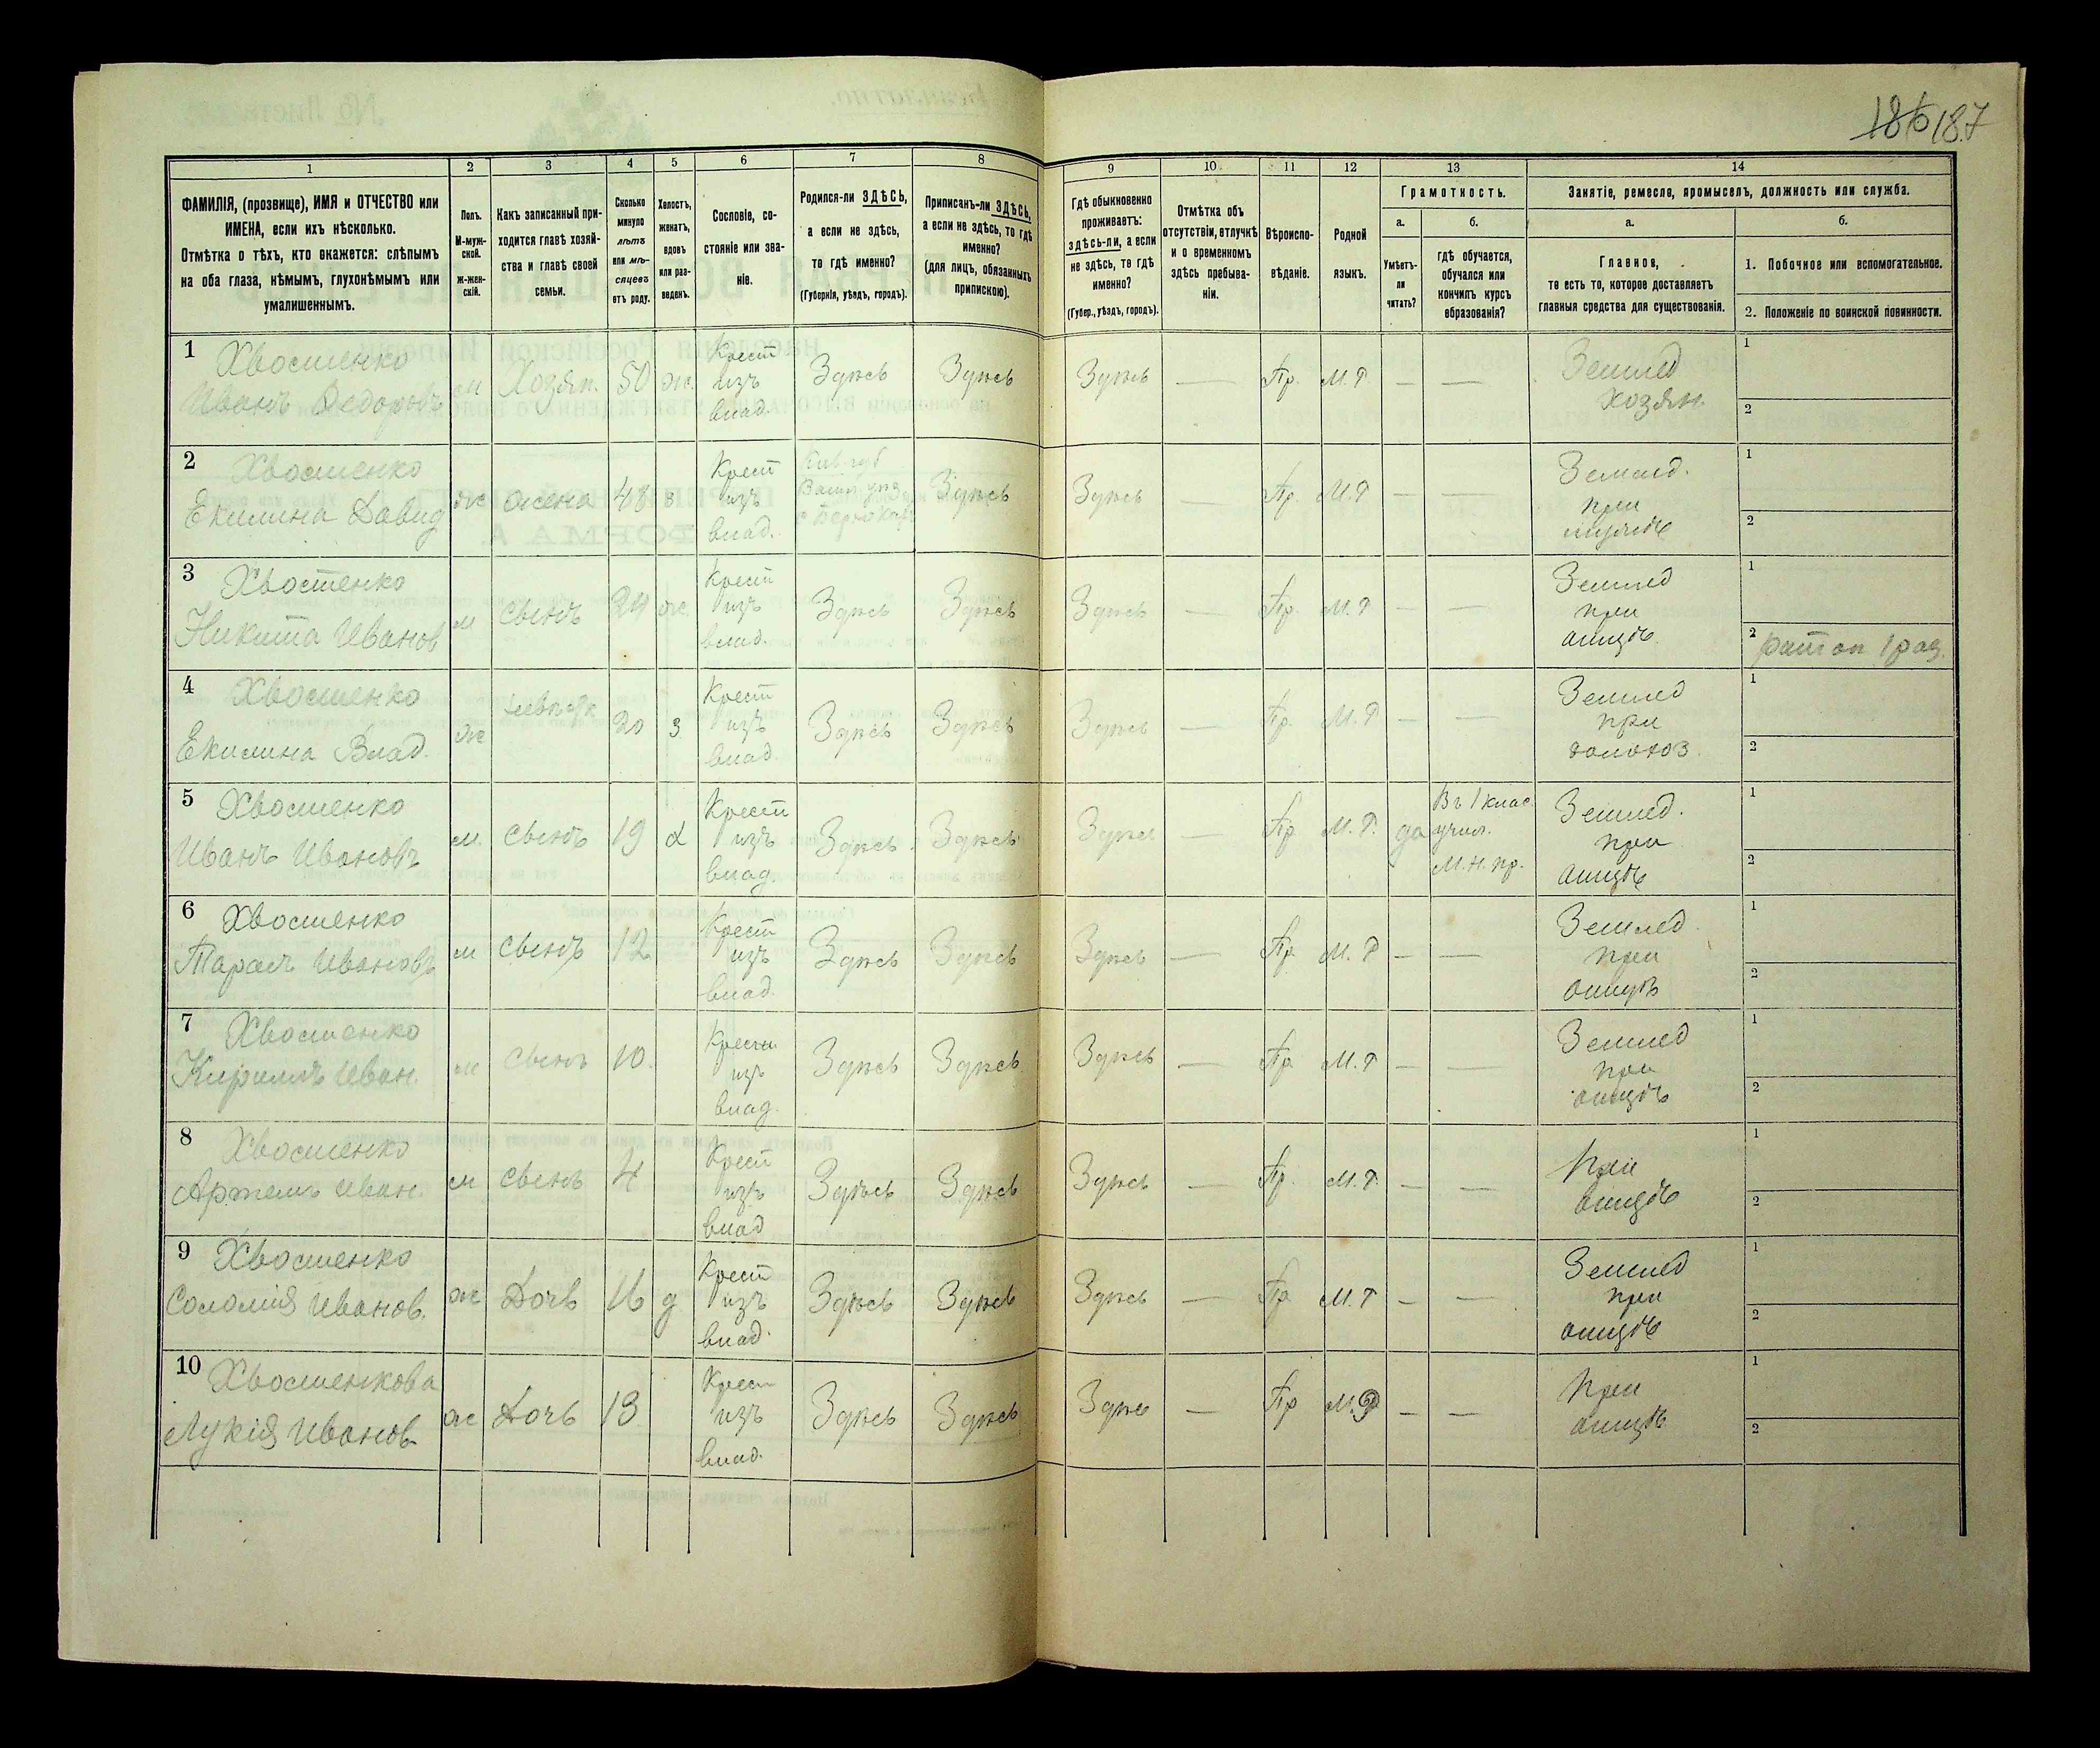 186 187
1
2
3
4
5
6
7
8
9
10
11
12
13
14
ФАМИЛІЯ, (прозвище), ИМЯ и ОТЧЕСТВО или
ИМЕНА, если ихъ нѣсколько.
Отмѣтка о тѣхъ, кто окажется: слѣпымъ
на оба глаза, нѣмымъ, глухонѣмымъ или
умалишеннымъ.
Полъ.
М-муж-
ской.
ж-жен-
скій.
Какъ записанный при-
ходится главѣ хозяй-
ства и главѣ своей
семьи.
Сколько
минуло
лѣтъ
или мѣ-
сяцевъ
отъ роду.
Холостъ,
женатъ,
вдовъ
или раз-
веденъ.
Сословіе, со-
стояніе или зва-
ніе.
Родился-ли ЗДѢСЬ,
а если не здѣсь,
то гдѣ именно?
(Губернія, уѣздъ, городъ).
Приписанъ-ли ЗДѢСЬ,
а если не здѣсь, то гдѣ
именно?
(для лицъ, обязанныхъ
припискою).
Гдѣ обыкновенно
проживаетъ:
здѣсь-ли, а если
не здѣсь, то гдѣ
именно?
(Губер., уѣздъ, городъ).
Отмѣтка объ
отсутствіи, отлучкѣ
и о временномъ
здѣсь пребыва-
ніи.
Вѣроиспо-
вѣданіе.
Родной
языкъ.
Грамотность.
а.
Умѣетъ-
ли
читать?
б.
гдѣ обучается,
обучался или
кончилъ курсъ
образованія?
Занятіе, ремесло, промыселъ, должность или служба.
а.
Главное,
то есть то, которое доставляетъ
главныя средства для существованія.
б.
1. Побочное или вспомогательное.
2. Положеніе по воинской повинности.
1 Хвостенко
Иванъ Федоровъ
м
Хозяи.
50
ж.
Крест
изъ
влад.
Здѣсь
Здѣсь
Здѣсь
—
Пр.
М. Р
—
—
Землед
хозяи.
1
2
2 Хвостенко
Екилина Давид
ж
жена
48
з
Крест
изъ
влад.
Кив. губ
Васил. уѣз
Здѣсь
Здѣсь
—
Пр.
М. Р
—
—
Землед.
при
мужѣ
1
2
3 Хвостенко
Никита Иванов
м
сынъ
24
ж.
Крест
изъ
влад.
Здѣсь
Здѣсь
Здѣсь
—
Пр.
М. Р
—
—
Землед
при
отцѣ
1
2 ратоп 1 раз.
4 Хвостенко
Екилина Влад.
ж
невѣстк
20
з
Крест
изъ
влад
Здѣсь
Здѣсь
Здѣсь
—
Пр.
М. Р
—
—
Землед
при
1
2
5 Хвостенко
Иванъ Ивановъ
м.
сынъ
19
х
Крест
изъ
влад.
Здѣсь
Здѣсь
Здѣсь
—
Пр
М. Р.
да
Въ 1 клас
учил.
М. н. пр.
Землед.
при
отцѣ
1
2
6 Хвостенко
Тарасъ Ивановъ
м
сынъ
12
Крест
изъ
влад.
Здѣсь
Здѣсь
Здѣсь
—
Пр.
М. Р
—
—
Землед.
при
отцѣ
1
2
7 Хвостенко
Кирилъ Иван.
м
сынъ
10.
Крест
изъ
влад.
Здѣсь
Здѣсь
Здѣсь
—
Пр.
М. Р
—
—
Землед
при
отцѣ
1
2
8 Хвостенко
Артемъ Иван.
м
сынъ
4
Крест
изъ
влад
Здѣсь
Здѣсь
Здѣсь
—
Пр.
М. Р.
—
—
при
отцѣ
1
2
9 Хвостенко
Соломія Иванов.
ж
Дочь
16
д
Крест
изъ
влад.
Здѣсь
Здѣсь
Здѣсь
—
Пр
М. Р
—
—
Землед
при
отцѣ
1
2
10 Хвостенкова
Лукія Иванов
ж
Дочь
13
Крест
изъ
влад.
Здѣсь
Здѣсь
Здѣсь
—
Пр
М. Р
—
—
при
отцѣ
1
2